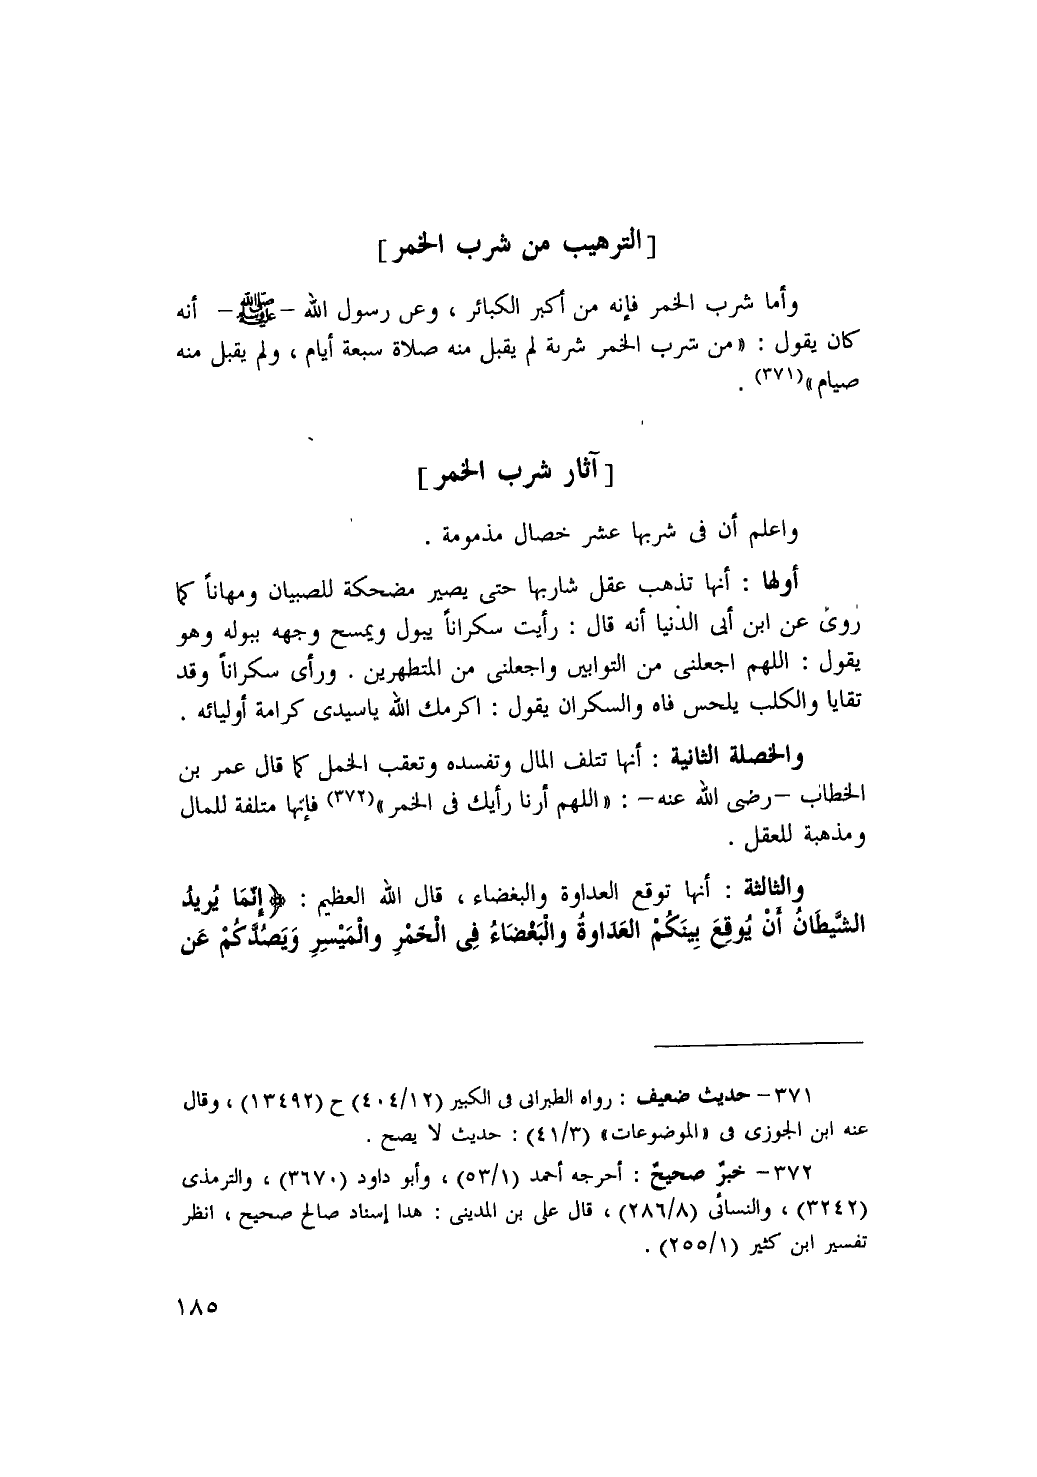 [ الترهيب من شرب الخمر ]
وأما شرب الخمر فإنه من أكبر الكبائر ، وعن رسول الله – ﷺ – أنه
كان يقول : « من شرب الخمر شربة لم يقبل منه صلاة سبعة أيام ، ولم يقبل منه
صيام »(٣٧١) .
[ آثار شرب الخمر ]
واعلم أن فى شربها عشر خصال مذمومة .
أولها : أنها تذهب عقل شاربها حتى يصير مضحكة للصبيان ومهاناً كما
روى عن ابن أبى الدنيا أنه قال : رأيت سكراناً يبول ويمسح وجهه ببوله وهو
يقول : اللهم اجعلنى من التوابين واجعلنى من المتطهرين . ورأى سكراناً وقد
تقايا والكلب يلحس فاه والسكران يقول : اكرمك الله ياسيدى كرامة أوليائه .
والخصلة الثانية : أنها تتلف المال وتفسده وتعقب الخمل كما قال عمر بن
الخطاب –رضى الله عنه– : « اللهم أرنا رأيك فى الخمر »(٣٧٢) فإنها متلفة للمال
ومذهبة للعقل .
والثالثة : أنها توقع العداوة والبغضاء ، قال الله العظيم : ﴿ إِنَّمَا يُريدُ
الشَّيطَانُ أَنْ يُوقِعَ بِينَكُمْ العَدَاوةُ والْبَغْضَاءُ فِى الْخَمْرِ والْمَيْسِرِ وَيَصُدَّكُمْ عَن
٣٧١– حديث ضعيف : رواه الطبرانى فى الكبير (٤٠٤/١٢) ح (١٣٤٩٢) ، وقال
عنه ابن الجوزى فى «الموضوعات» (٤١/٣) : حديث لا يصح .
٣٧٢– خبرٌ صحيحٌ : أخرجه أحمد (٥٣/١) ، وأبو داود (٣٦٧٠) ، والترمذى
(٣٢٤٢) ، والنسائى (٢٨٦/٨) ، قال على بن المدينى : هذا إسناد صالح صحيح ، انظر
تفسير ابن كثير (٢٥٥/١) .
١٨٥